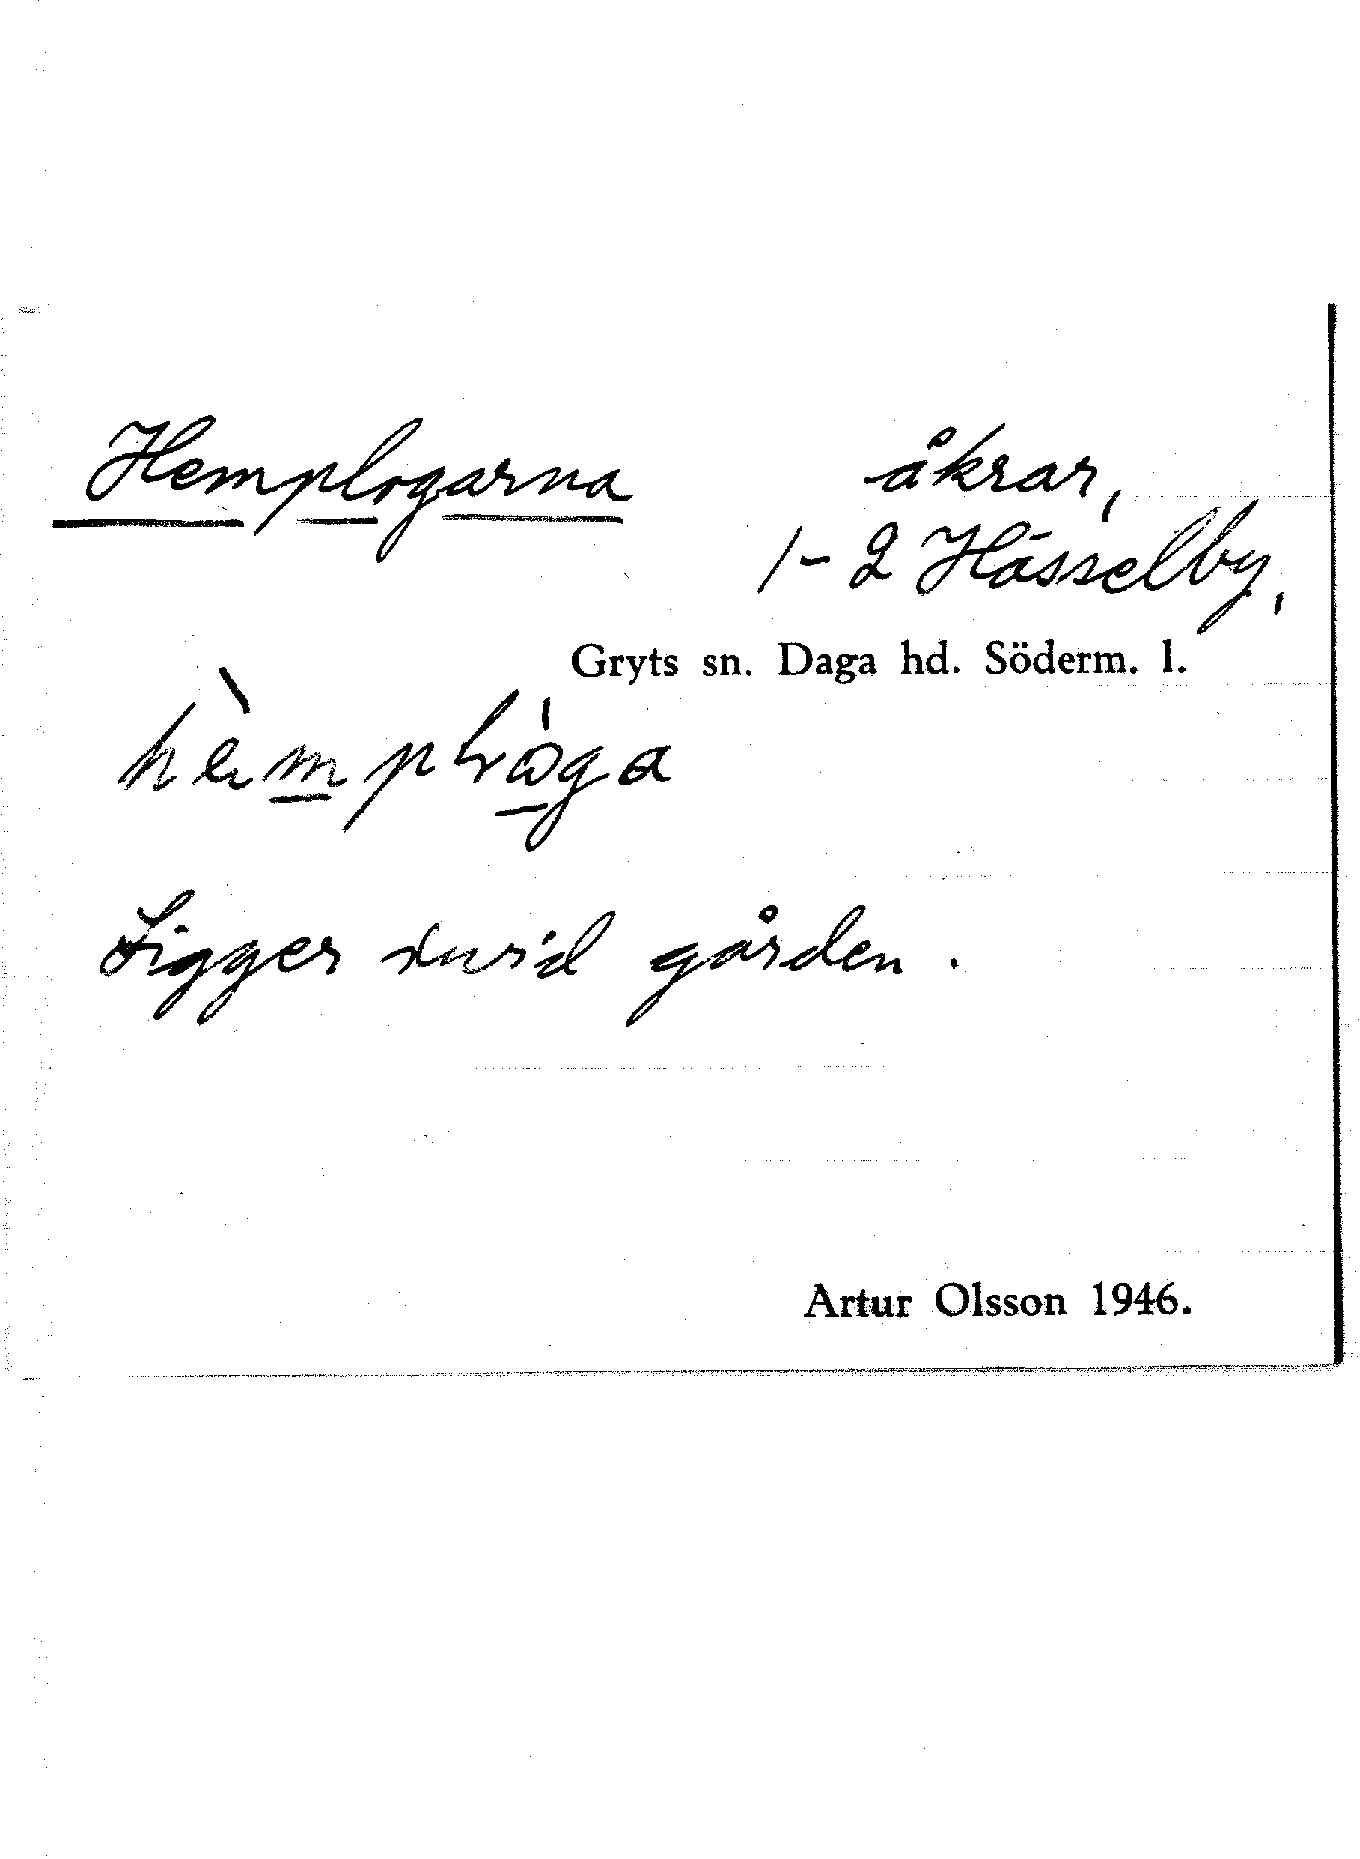 Hemplogarna åkrar,
1-2 Hässelby,
Gryts sn. Daga hd. Söderm. l.
Ligger invid gården.
Artur Olsson 1946.